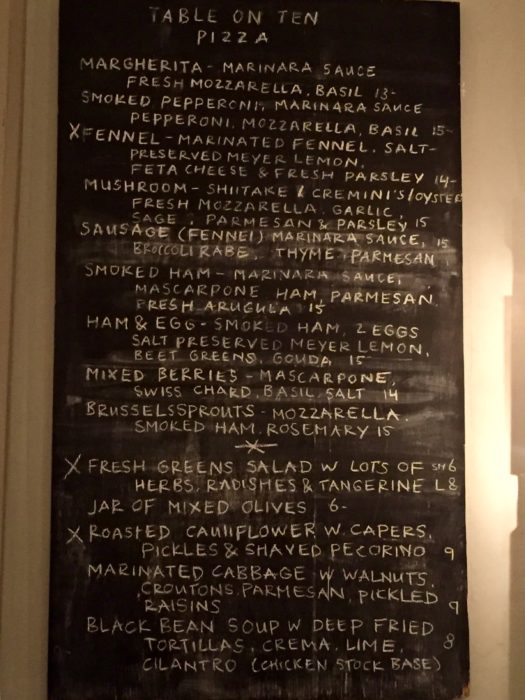 TABLE ON TEN
PIZZA
MARGHERITA - MARINARA SAUCE
FRESH MOZZARELLA, BASIL 13-
SMOKED PEPPERONI, MARINARA SAUCE
PEPPERONI, MOZZARELLA, BASIL 15-
X FENNEL - MARINATED FENNEL, SALT-
PRESERVED MEYER LEMON,
FETA CHEESE & FRESH PARSLEY 14-
MUSHROOM - SHIITAKE / CREMINI'S/OYSTER
FRESH MOZZARELLA, GARLIC,
SAGE, PARMESAN & PARSLEY 15
SAUSAGE (FENNEL) MARINARA SAUCE, 15
BROCCOLI RABE, THYME, PARMESAN
SMOKED HAM - MARINARA SAUCE,
MASCARPONE, HAM, PARMESAN,
FRESH ARUGULA 15
HAM & EGG - SMOKED HAM, 2 EGGS
SALT PRESERVED MEYER LEMON,
BEET GREENS, GOUDA 15
MIXED BERRIES - MASCARPONE,
SWISS CHARD, BASIL, SALT 14
BRUSSELSSPROUTS - MOZZARELLA,
SMOKED HAM, ROSEMARY 15
X FRESH GREENS SALAD W LOTS OF SM 6
HERBS, RADISHES & TANGERINE L 8
JAR OF MIXED OLIVES 6-
X ROASTED CAULIFLOWER W. CAPERS,
PICKLES & SHAVED PECORINO 9
MARINATED CABBAGE W WALNUTS,
CROUTONS, PARMESAN, PICKLED
RAISINS 9
BLACK BEAN SOUP W DEEP FRIED
TORTILLAS, CREMA, LIME, 8
CILANTRO (CHICKEN STOCK BASE)